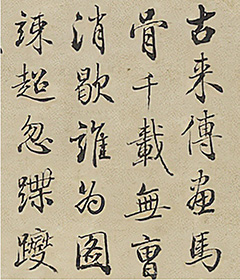 古来傳畫馬
骨千載無曹
消歇誰為圖
竦超忽蹀躞